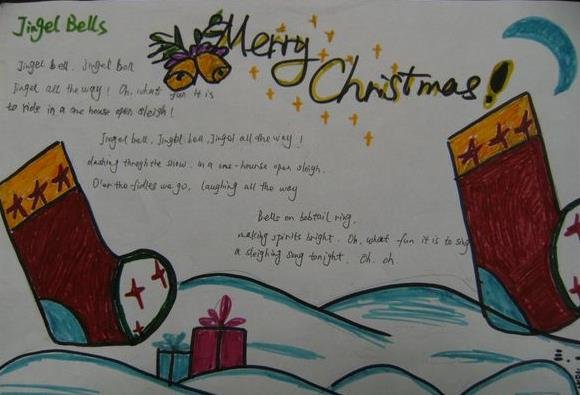 Jingel Bells
Merry
Christmas!
Jingel bell. Jingel Bell
Jingel all the way! Oh, what fun it is
to ride in a one house open sleigh!
Jingel bell, Jingel bell, Jingel all the way!
dashing through the snow. in a one-hourse open sleigh.
O'er the fidles we go, laughing all the way
Bells on bobtail ring,
making spirits bright. Oh, what fun it is to sing
a sleighing song tonight. Oh. oh.